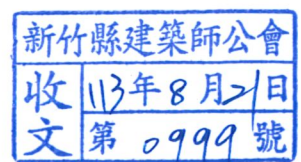 新竹縣建築師公會
收文
113年8月21日
第0999號